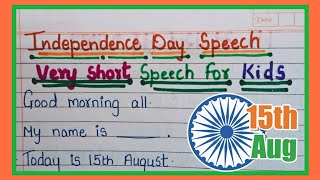 Date
Independence Day Speech
Very short Speech for Kids
Good morning all.
My name is ______.
Today is 15th August.
15th
Aug